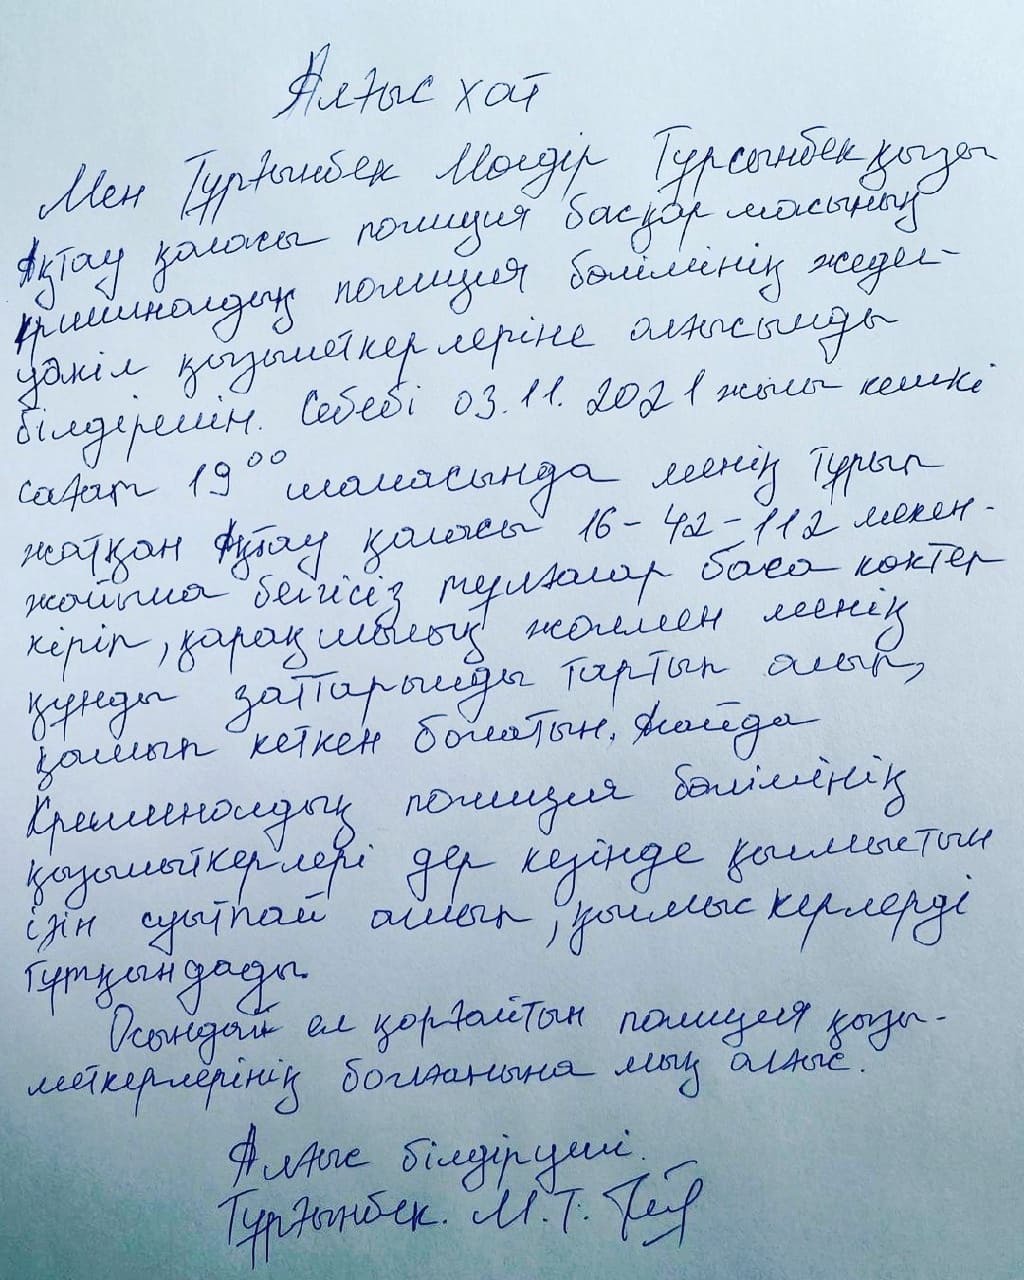 Алғыс хат
Мен Тұрғынбек Мөлдір Тұрсынбекқызы
Ақтау қаласы полиция басқармасының
криминалдық полиция бөлімінің жедел-
уәкіл қызыметкерлеріне алғысымды
білдіремін. Себебі 03.11.2021 жылы кешкі
сағат 19⁰⁰ шамасында менің тұрып
жатқан Ақтау қаласы 16-42-112 мекен-
жайыма белгісіз тұлғалар баса көктер
кіріп, қарақшылық жолмен менің
құнды заттарымды тартып алып,
қашып кеткен болатын. Алайда
Криминалдық полиция бөлімінің
қызыметкерлері дер кезінде қылмыстың
ізін суытпай ашып, қылмыскерлерді
тұтқындады.
Осындай ел қорғайтын полиция қызы-
меткерлерінің болғанына мың алғыс.
Алғыс білдіруші.
Тұрғынбек. М.Т.